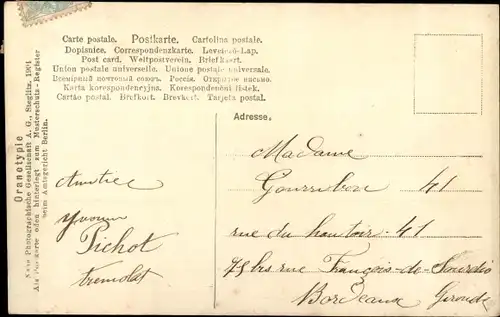 Carte postale. Postkarte. Cartolina postale.
Dopisnice. Correspondenzkarte. Levelező-Lap.
Post card. Weltpostverein. Briefkaart.
Union postale universelle. Unione postale universale.
Всемірный почтовый союзъ. Россія. Открытое письмо.
Karta korespondencyjna. Korespondenční lístek.
Cartão postal. Brefkort. Brevkort. Tarjeta postal.
Oranotypie
Neue Photographische Gesellschaft A. G., Steglitz, 1904
Als Postkarte oden hinterlegt zum Musterschutz-Register
beim Amtsgericht Berlin.
Adresse.
Amitié
Yvonne
Pichot
Tremolat
Madame
41
rue du hautoir 41
75 bis rue François-de-Sourdis
Bordeaux Gironde